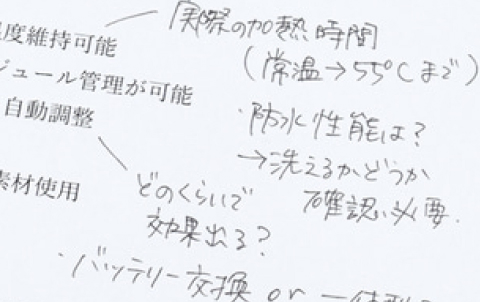 度維持可能
ジュール管理が可能
自動調整
素材使用
実際の加熱時間
(常温→55℃まで)
・防水性能は?
→洗えるかどうか
確認必要.
どのくらいで
効果出る?
・バッテリー交換 or 一体型